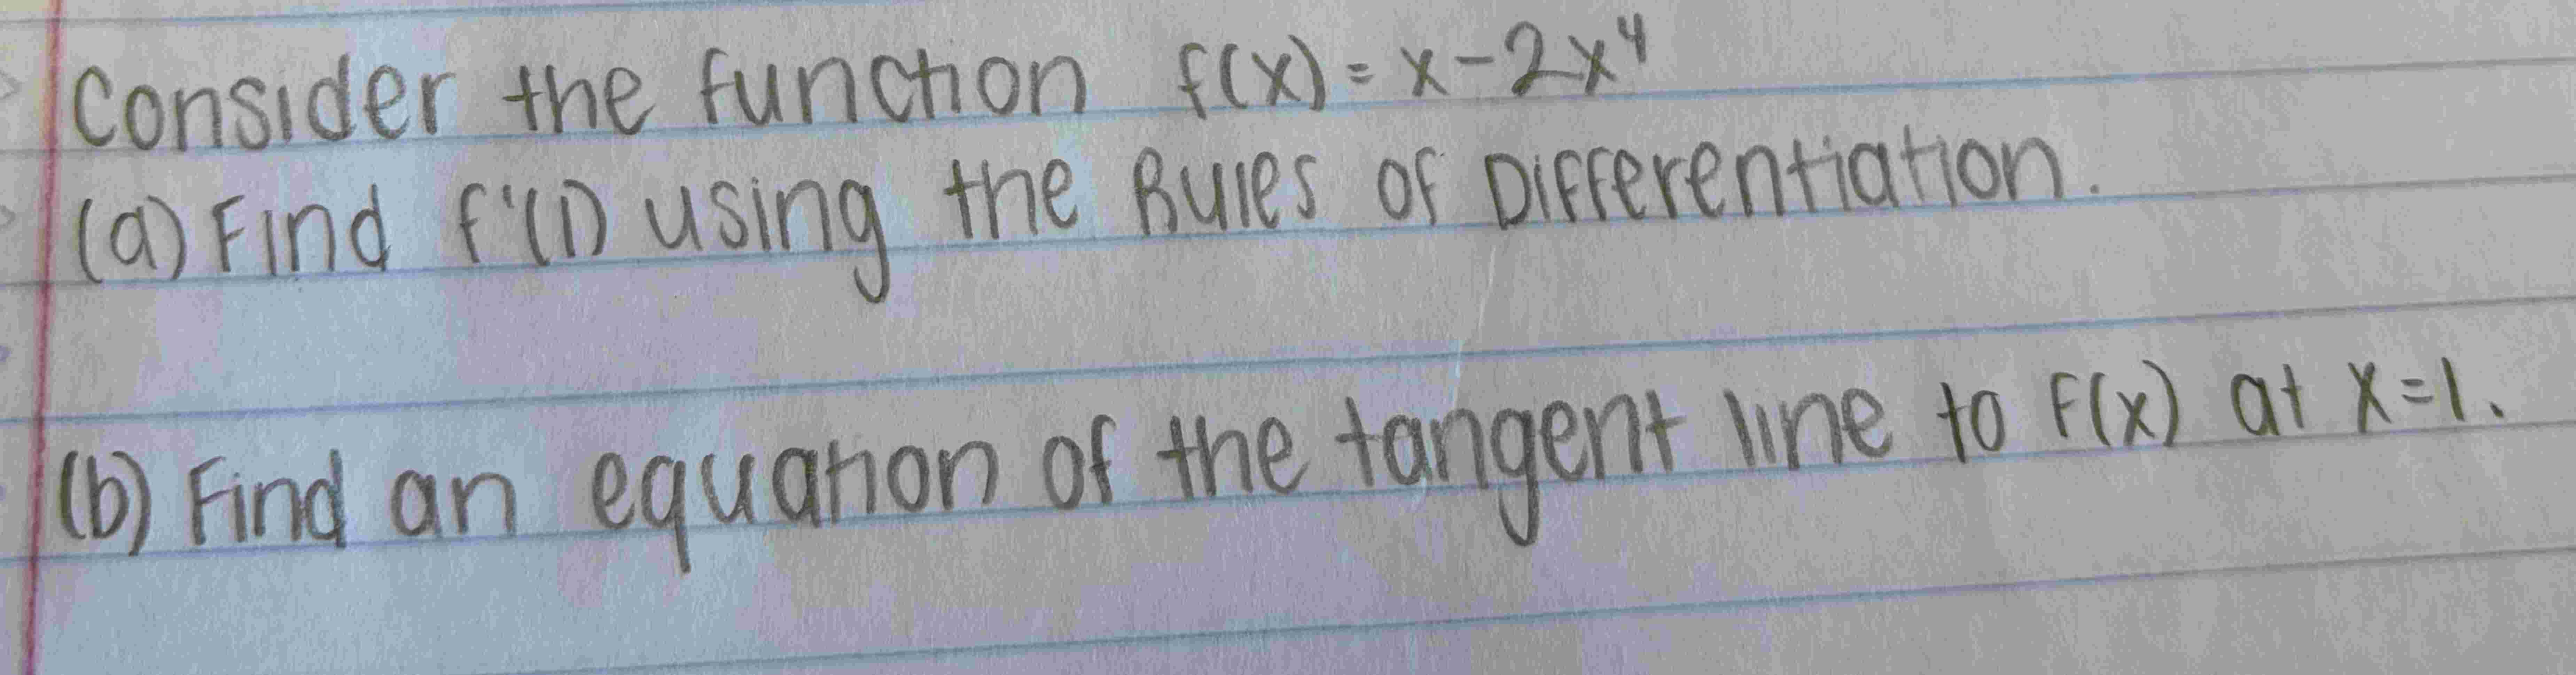 Consider the function f(x) = x-2x⁴
(a) Find f'(1) using the Rules of Differentiation.
(b) Find an equation of the tangent line to f(x) at x=1.